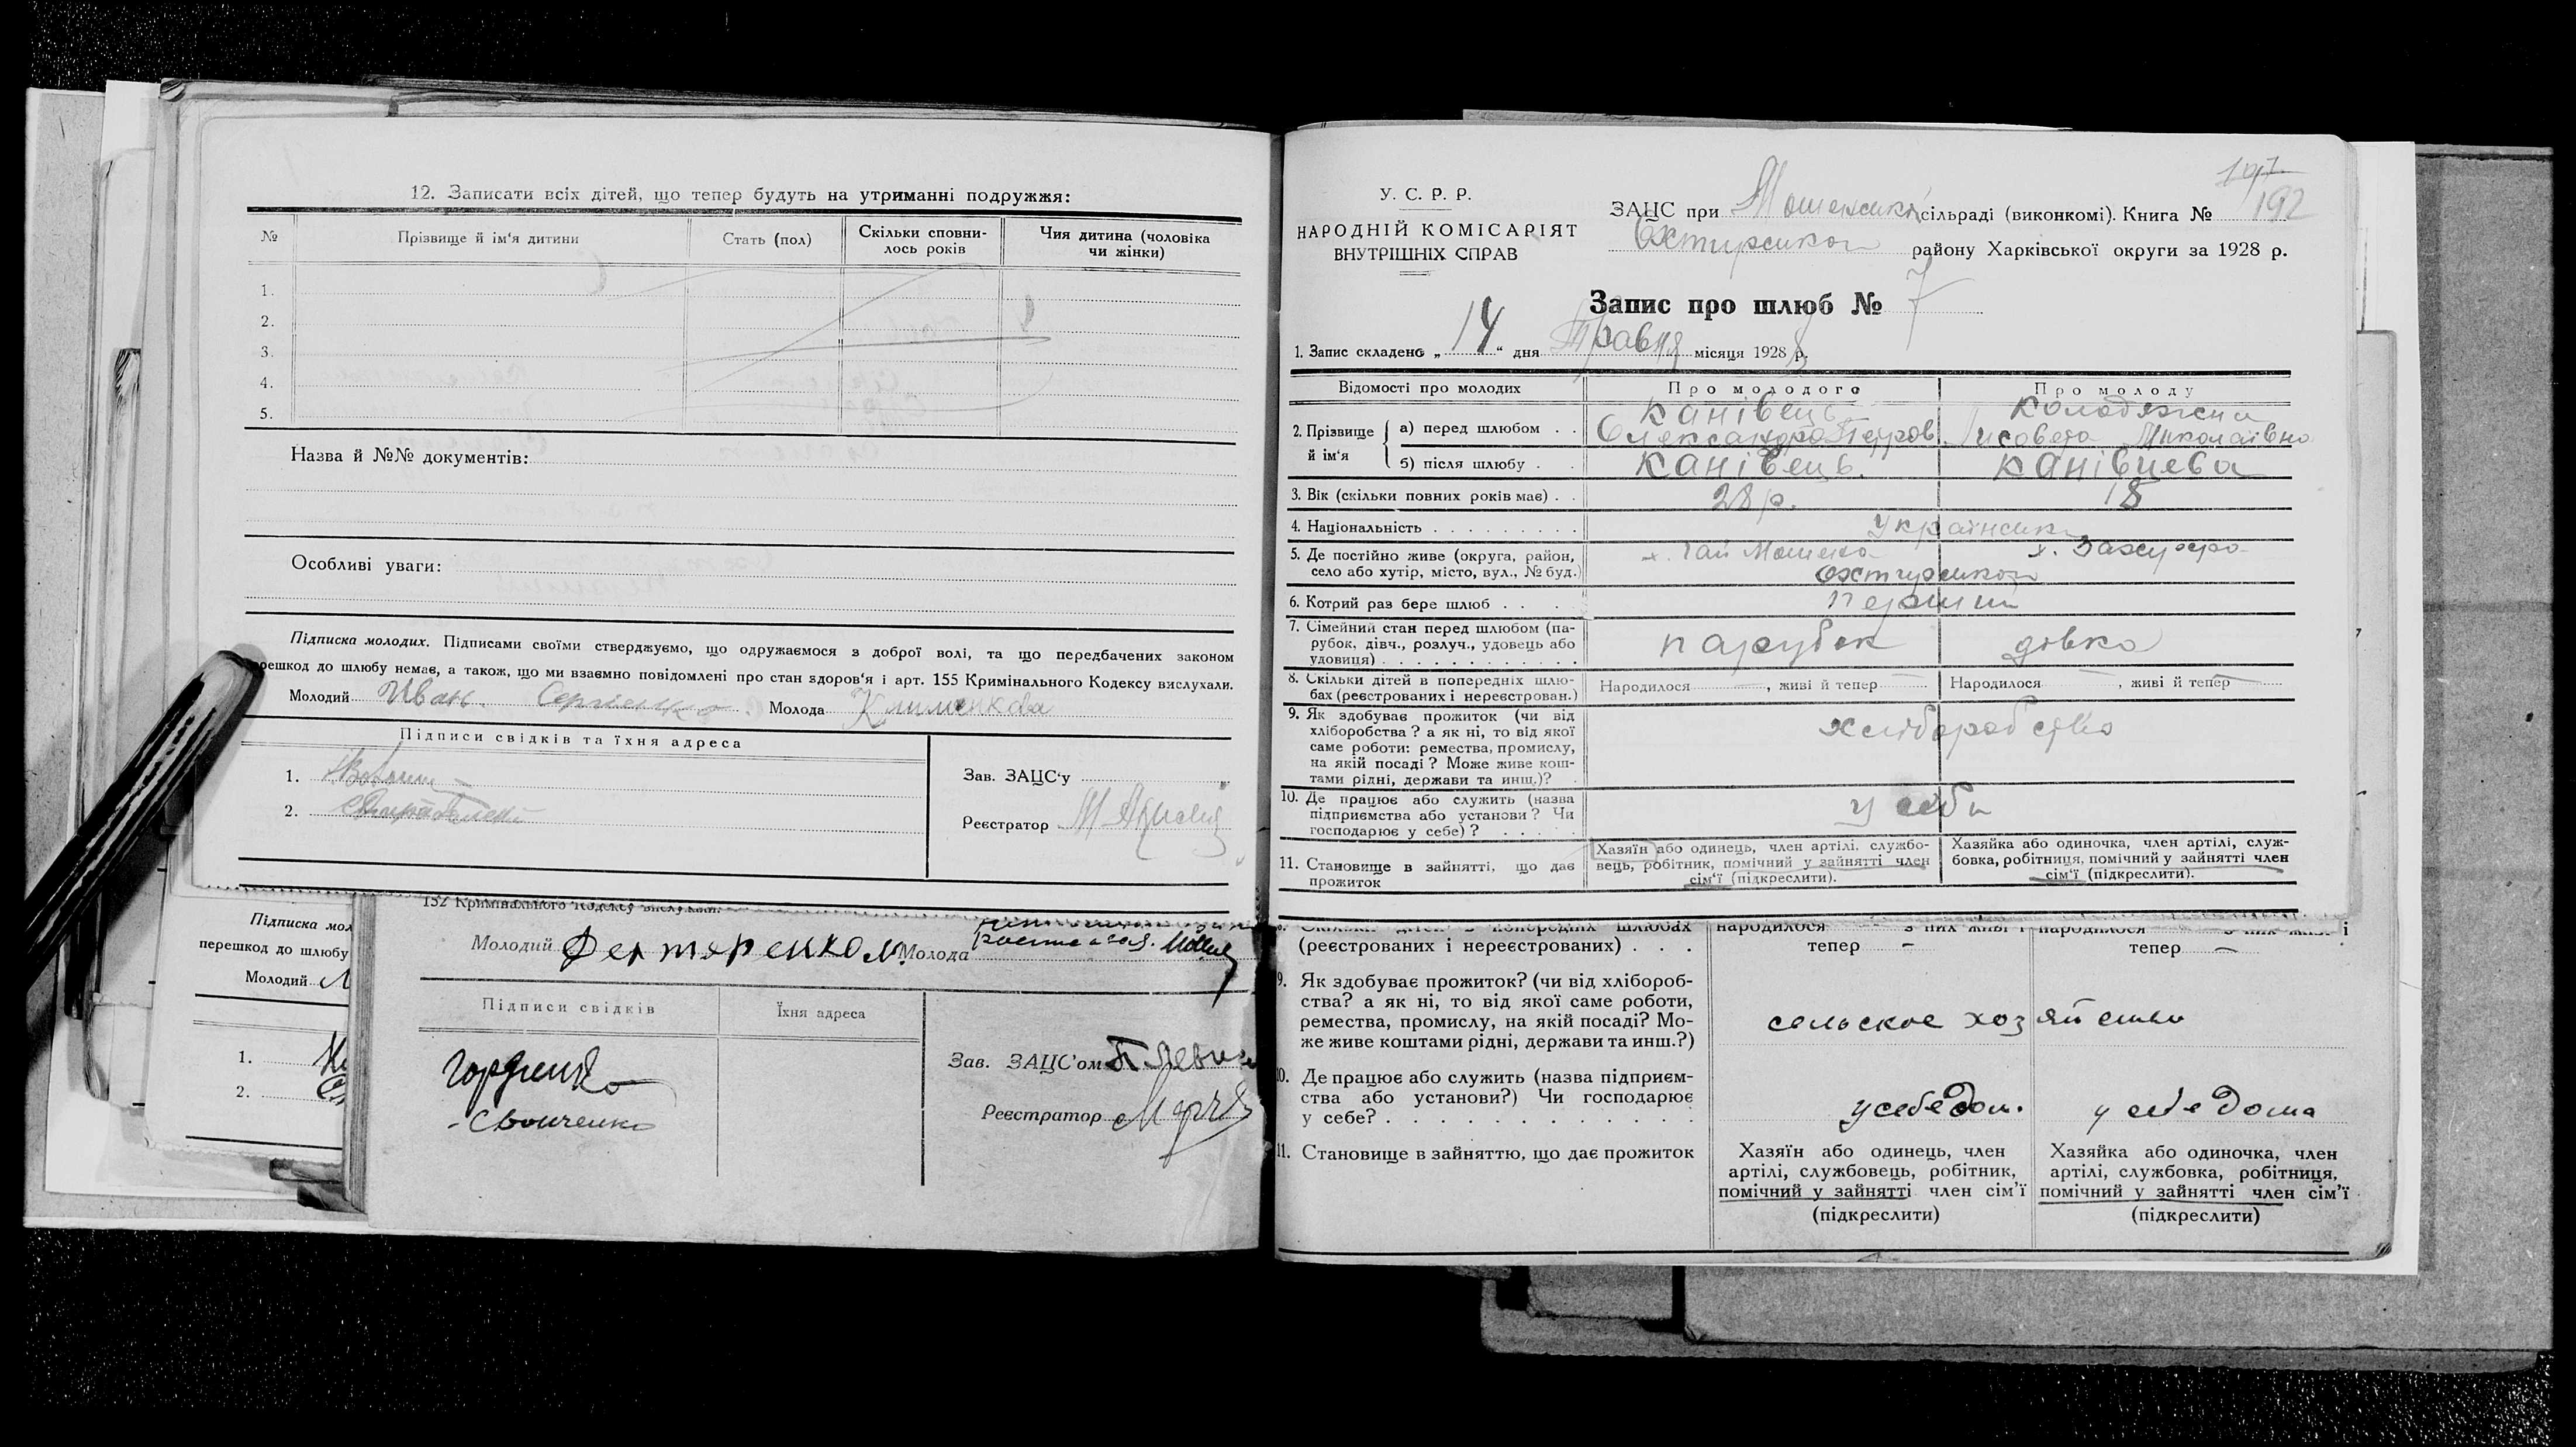 12. Записати всіх дітей, що тепер будуть на утриманні подружжя:
№ Прізвище й ім'я дитини Стать (пол) Скільки сповни-лось років Чия дитина (чоловіка чи жінки)
1.
2.
3.
4.
5.
Назва й №№ документів:
Особливі уваги:
Підписка молодих. Підписами своїми стверджуємо, що одружаємося з доброї волі, та що передбачених законом
решкод до шлюбу немає, а також, що ми взаємно повідомлені про стан здоров'я і арт. 155 Кримінального Кодексу вислухали.
Молодий Иван. Сергіенко. Молода Клименкова
Підписи свідків та їхня адреса
1.
2.
Зав. ЗАЦС'у
Реєстратор М
Підписка мол
перешкод до шлюбу
Молодий
1.
2.
152 Кримінального Кодексу вислухали.
Молодий Дегтяренко Молода
Підписи свідків Їхня адреса
Гордиенко
Зав. ЗАЦС'ом
Реєстратор
У. С. Р. Р.
НАРОДНІЙ КОМІСАРІЯТ
ВНУТРІШНІХ СПРАВ
191
192
ЗАЦС при сільраді (виконкомі). Книга №
Охтирсько району Харківської округи за 1928 р.
Запис про шлюб № 7
1. Запис складено „14" дня Травня місяця 1928 р.
Відомості про молодих Про молодого Про молоду
2. Прізвище й ім'я
а) перед шлюбом . . Канівець Олександро Петров. Колодяжна Лисовета Миколаївно
б) після шлюбу . Канівець. Канівцева
3. Вік (скільки повних років має) . . 28 р. 18
4. Національність Українськ
5. Де постійно живе (округа, район,
село або хутір, місто, вул., № буд.) х. Гай Мошенка х.
Охтирсько
6. Котрий раз бере шлюб . . перший
7. Сімейний стан перед шлюбом (па-
рубок, дівч., розлуч., удовець або
удовиця) парубок дівка
8. Скільки дітей в попередніх шлю-
бах (реєстрованих і нереєстрован.) Народилося — , живі й тепер — Народилося — , живі й тепер —
9. Як здобуває прожиток (чи від
хліборобства? а як ні, то від якої
саме роботи: ремества, промислу,
на якій посаді? Може живе кош-
тами рідні, держави та инш.)? хліборобство
10. Де працює або служить (назва
підприємства або установи? Чи
господарює у себе)? у себи
11. Становище в зайнятті, що дає
прожиток
Хазяїн або одинець, член артілі, службо-
вець, робітник, помічний у зайнятті член
сім'ї (підкреслити).
Хазяйка або одиночка, член артілі, служ-
бовка, робітниця, помічний у зайнятті член
сім'ї (підкреслити).
(реєстрованих і нереєстрованих) . . . тепер – тепер –
9. Як здобуває прожиток? (чи від хлібороб-
ства? а як ні, то від якої саме роботи,
ремества, промислу, на якій посаді? Мо-
же живе коштами рідні, держави та инш.?)
сельское хозяйство
10. Де працює або служить (назва підприєм-
ства або установи?) Чи господарює
у себе? у себе дом. у себе дома
11. Становище в зайняттю, що дає прожиток
Хазяїн або одинець, член
артілі, службовець, робітник,
помічний у зайнятті член сім'ї
(підкреслити)
Хазяйка або одиночка, член
артілі, службовка, робітниця,
помічний у зайнятті член сім'ї
(підкреслити)